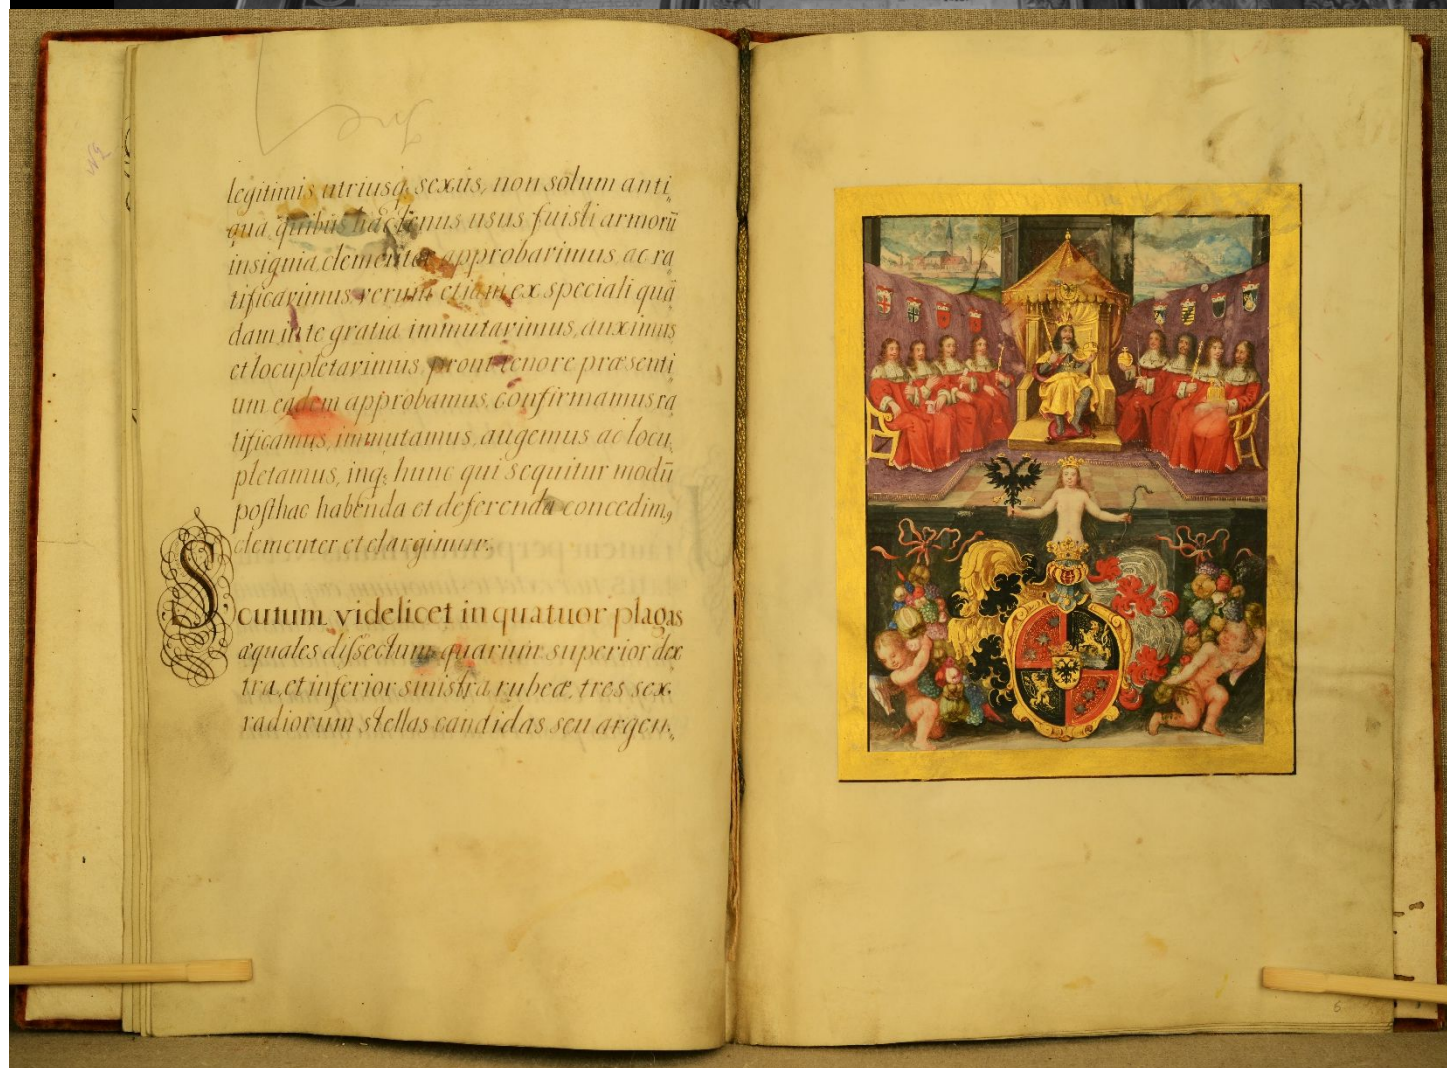 legitimis utriusq; sexûs, non solum anti„
qua, quibus hactenus usus fuisti armorũ
insignia clementer approbarimus, ac ra
tificarimus, verum etiam ex speciali quâ
dam in te gratia immutarimus, auximus
et locupletarimus, prout tenore præsenti
um eadem approbamus, confirmamus ra
tificamus, immutamus, augemus ac locu„
pletamus, inq; hunc qui sequitur modũ
posthac habenda et deferenda concedim9
clementer et elargimur.
Scutum videlicet in quatuor plagas
æquales dissectum quarum superior dex
tra, et inferior sinistra rubeæ, tres sex„
radiorum stellas candidas seu argen„
6